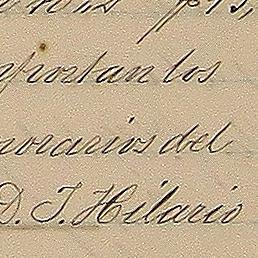 mportan los
norarios del
D. J. Hilario